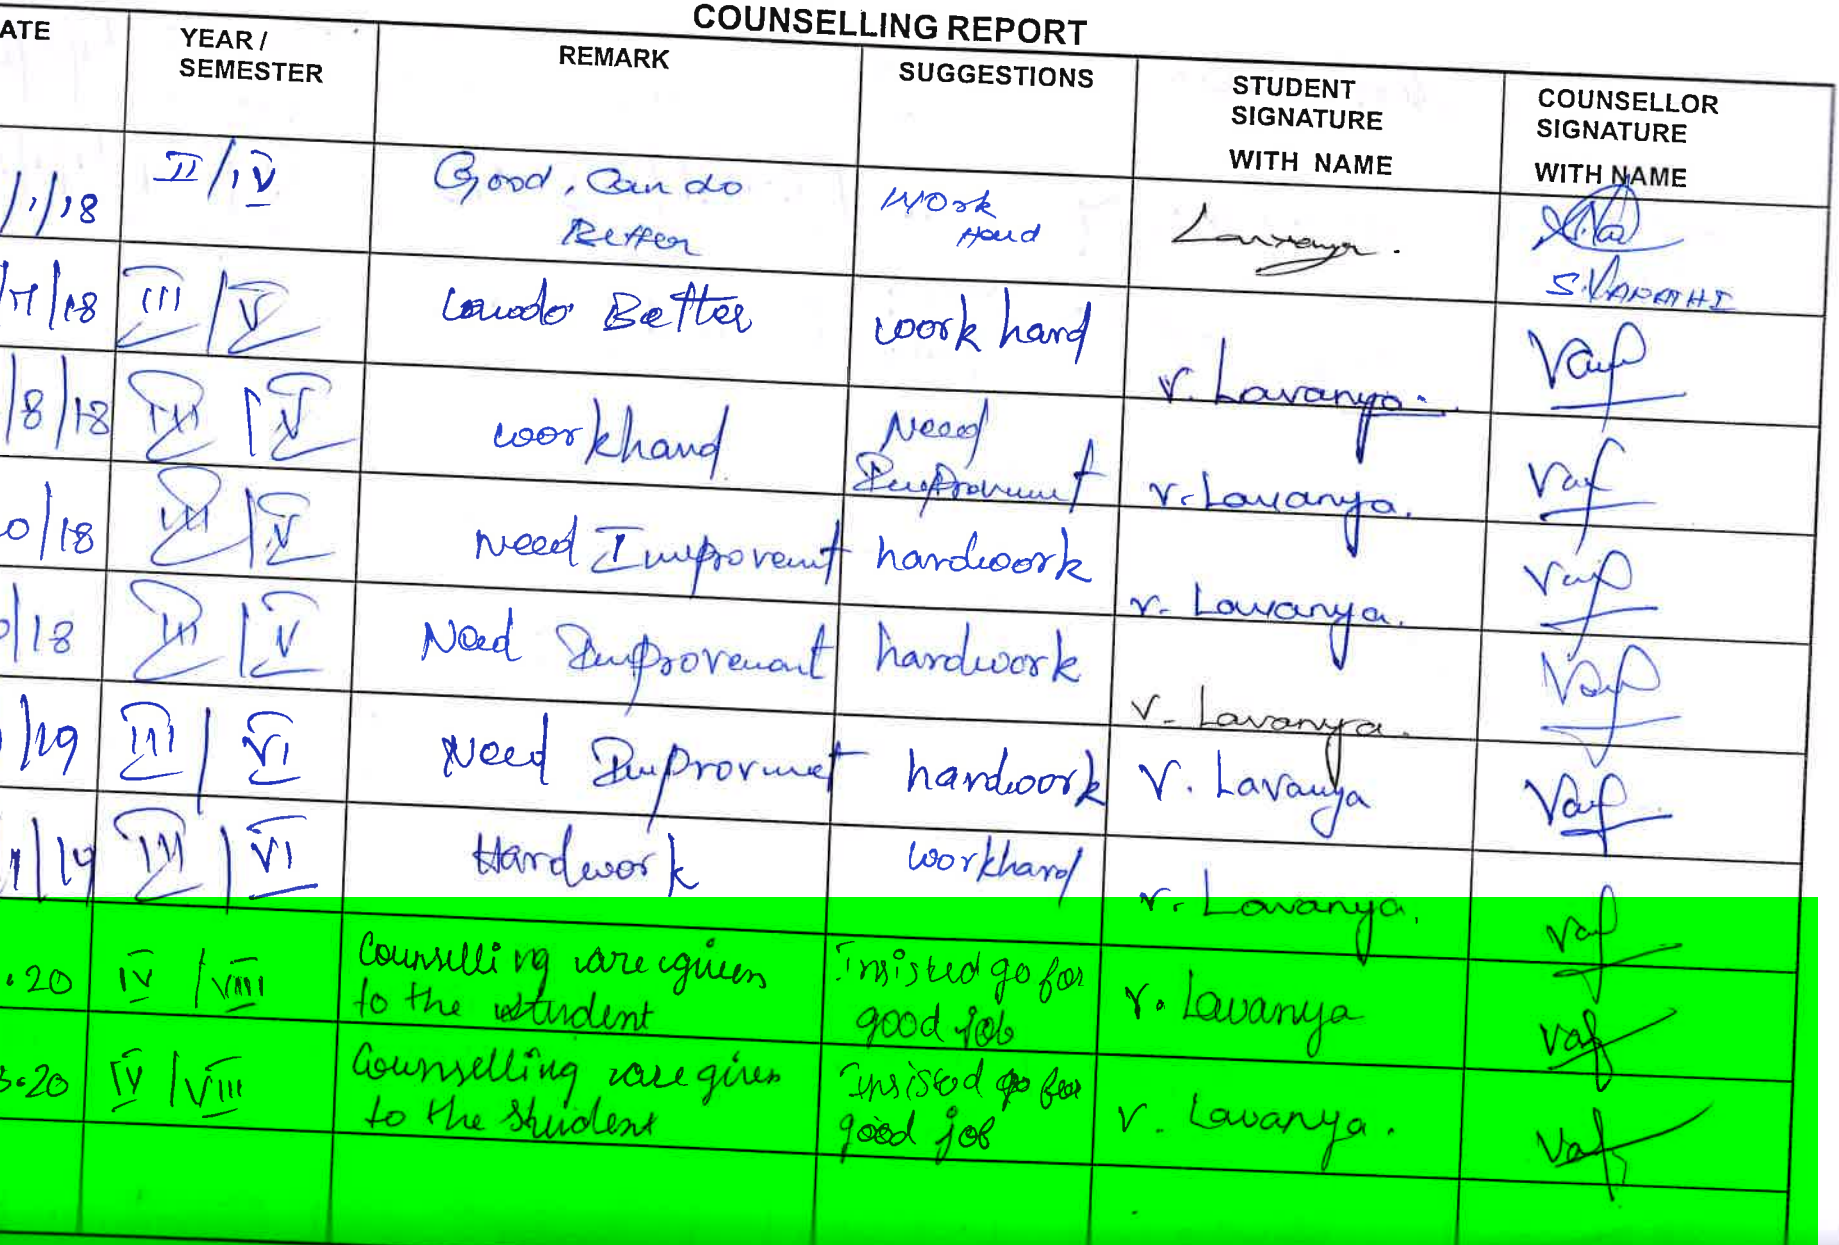 COUNSELLING REPORT
ATE
YEAR /
SEMESTER
REMARK
SUGGESTIONS
STUDENT
SIGNATURE
WITH NAME
COUNSELLOR
SIGNATURE
WITH NAME
/1/18
II/IV
Good, Can do
Better
Work
Hard
Lavanya.
S.VARATHI
/18
III/V
Cando Better
work hard
V. Lavanya.
/8/18
III/V
workhard
Need
Improvement
V. Lavanya.
0/18
III/V
Need Improvent
hardwork
V. Lavanya.
/18
III/V
Need Improvement
hardwork
V. Lavanya.
/19
III/VI
Need Improvmet
hardwork
V. Lavanya
/19
III/VI
Hardwork
workhard
V. Lavanya.
.20
IV/VIII
Counselling are given
to the student
Insisted go for
good job
V. Lavanya
3.20
IV/VIII
Counselling are given
to the student
Insisted go for
good job
V. Lavanya.